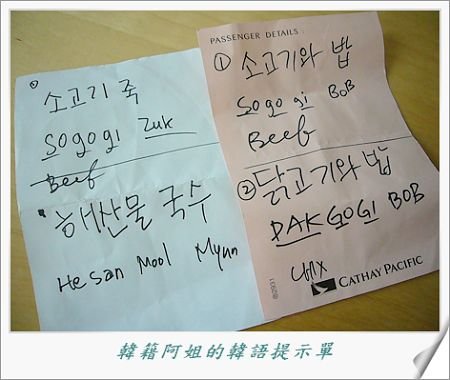 소고기 족
Sogogi Zuk
Beef
해산물 국수
He San Mool Myun
PASSENGER DETAILS
① 소고기와 밥
Sogogi BOB
Beef
② 닭고기와 밥
DAK GOGI BOB
CATHAY PACIFIC
韓籍阿姐的韓語提示單